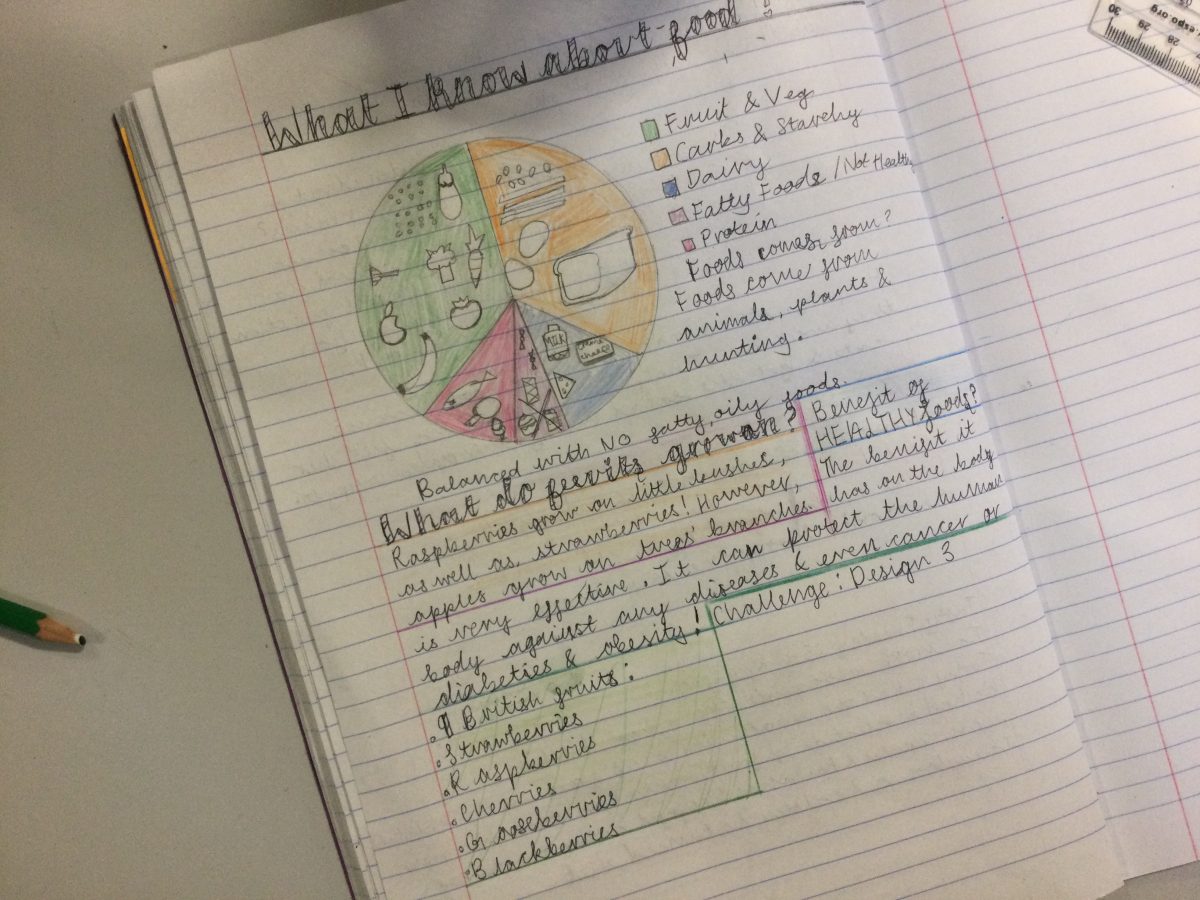 What I know about food!
Fruit & Veg
Carbs & Starchy
Dairy
Fatty Foods /Not Healthy
Protein
Foods comes from?
Foods come from
animals, plants &
hunting.
MILK
Balanced with NO fatty, oily foods.
What do fruits grown?
Raspberries grow on little bushes,
as well as, strawberries! However,
apples grow on trees' branches.
Benefit of
HEAlTHY foods?
The benifit it
has on the body
is very effective. It can protect the human
body against any diseases & even cancer or
diabeties & obesity!
British fruits:
Strawberries
Raspberries
Cherries
Gooseberries
Blackberries
Challenge: Design 3
30
29
28
espo.org